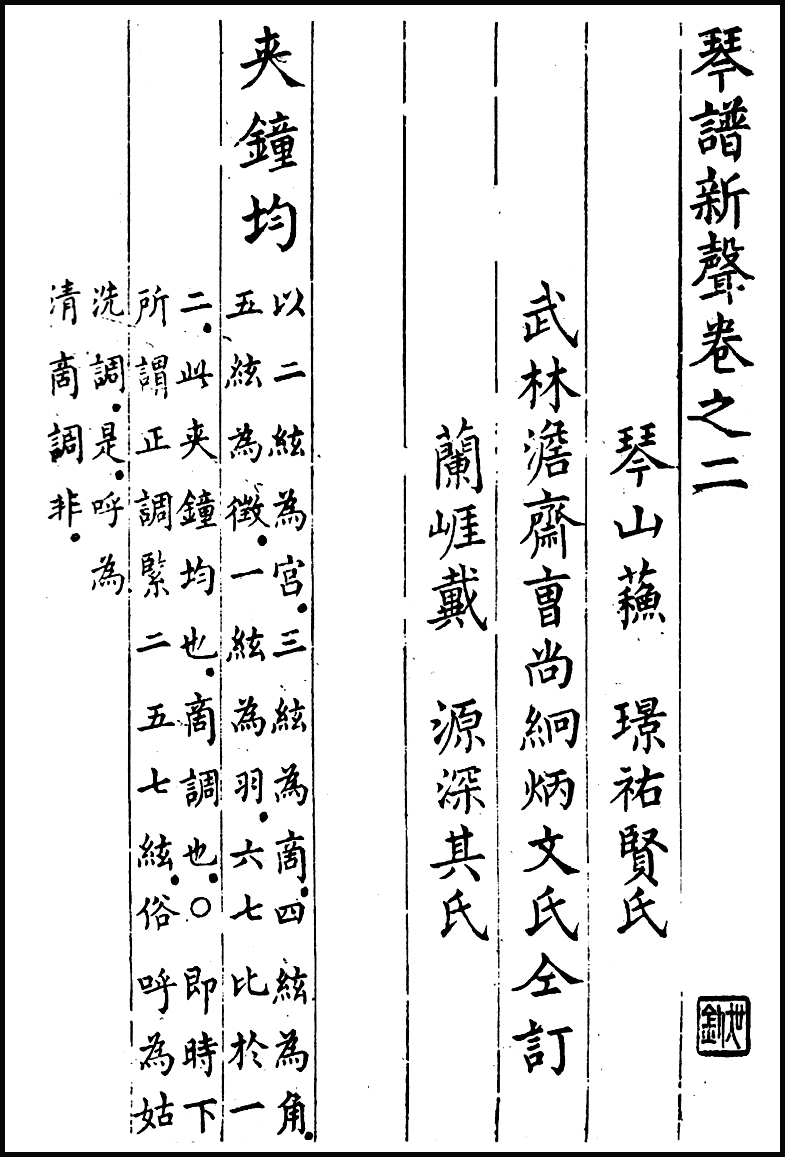 琴譜新聲卷之二
琴山蘓　璟祐賢氏
武林澹齋曺尚絅炳文氏仝訂
蘭崕戴　源深其氏
夾鐘均
以二絃為宮.三絃為商.四絃為角.
五絃為徵.一絃為羽.六七比於一
二.此夾鐘均也.商調也.○即時下
所謂正調緊二五七絃.俗呼為姑
洗調.是.呼為
清商調非.